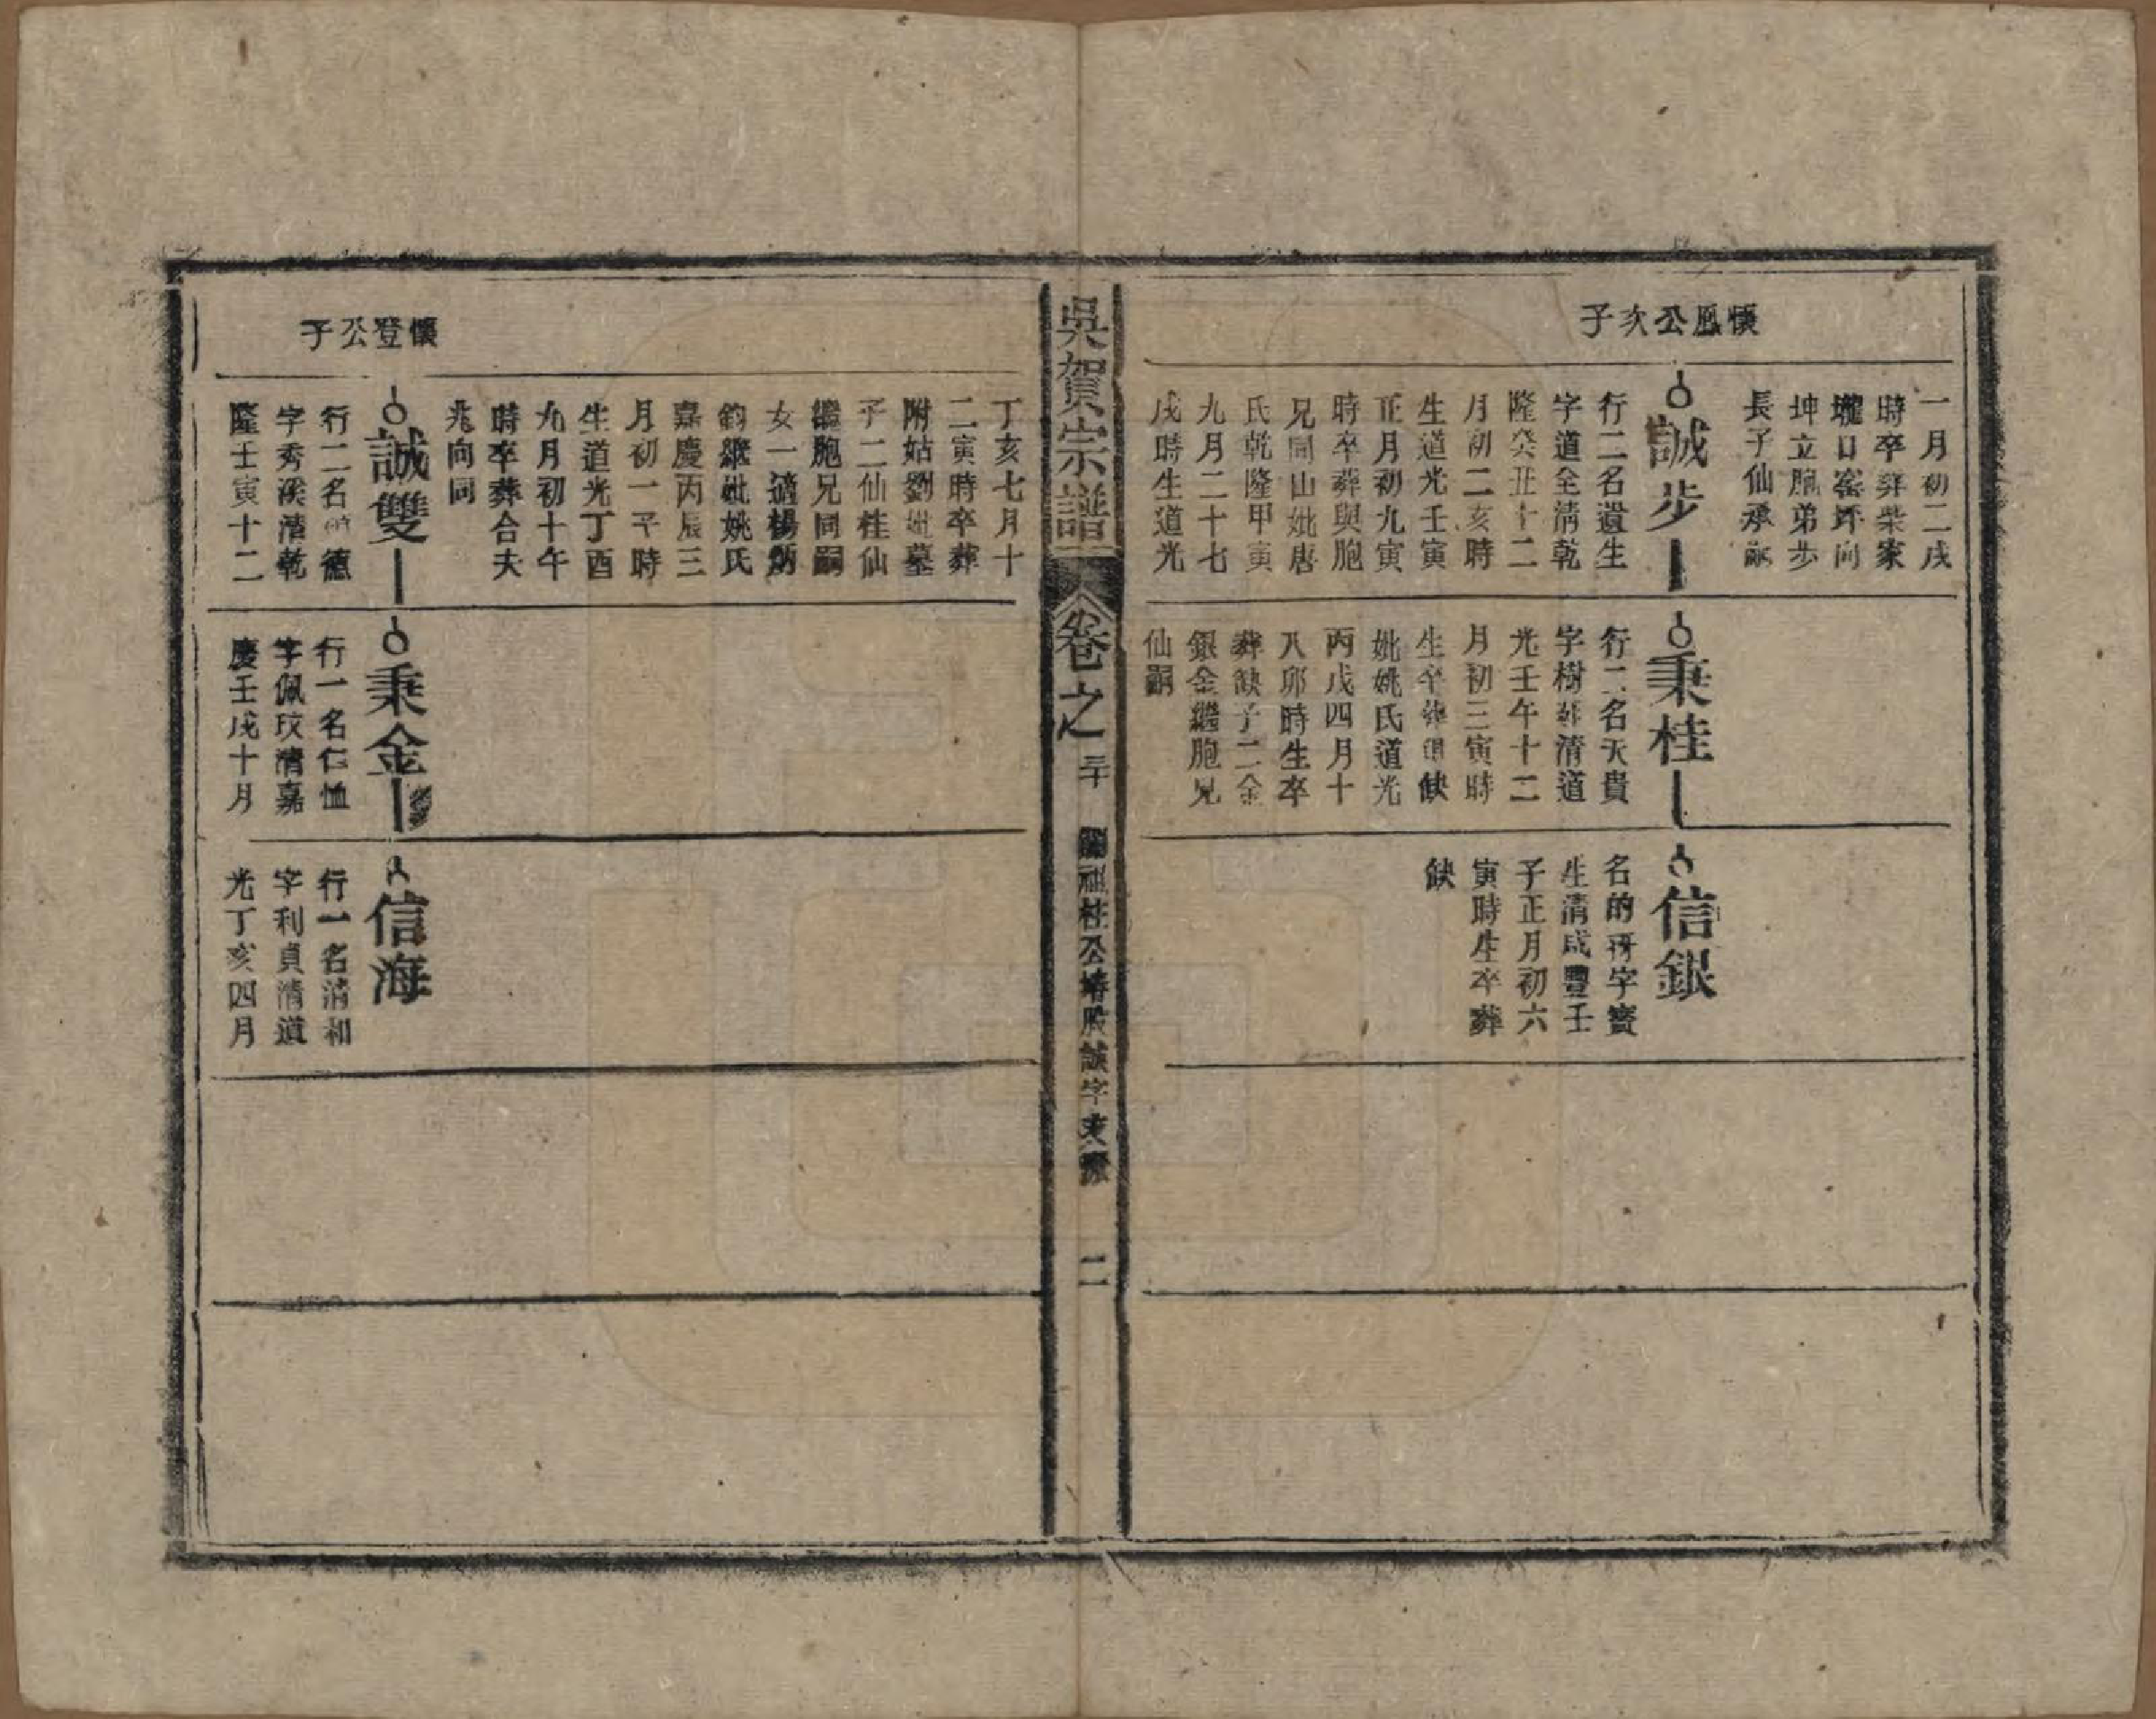 懷風公次子
一月初二戌
時卒葬柴家
壠口窑坪向
坤立胞弟步
長子仙承嗣
誠步
行二名遺生
字道全清乾
隆癸丑十二
月初二亥時
生道光壬寅
正月初九寅
時卒葬與胞
兄同山妣唐
氏乾隆甲寅
九月二十七
戌時生道光
秉桂
行二名天貴
字樹 清道
光壬午十二
月初三寅時
生卒葬俱缺
妣姚氏道光
丙戌四月十
八卯時生卒
葬缺子二金
銀金繼胞兄
仙嗣
信銀
名的 字寶
生清咸豐壬
子正月初六
寅時生卒葬
缺
吳賀宗譜
卷之
三十
祖桂公 房誠字支 
二
丁亥七月十
二寅時卒葬
附姑劉妣墓
子二仙桂仙
繼胞兄同嗣
女一適楊炳
鈞繼妣姚氏
嘉慶丙辰三
月初一平時
生道光丁酉
九月初十午
時卒葬合夫
兆向同
懷登公子
誠雙
行二名 德
字秀溪清乾
隆壬寅十二
秉金
行一名仁恤
字佩玟清嘉
慶壬戌十月
信海
行一名清和
字利貞清道
光丁亥四月